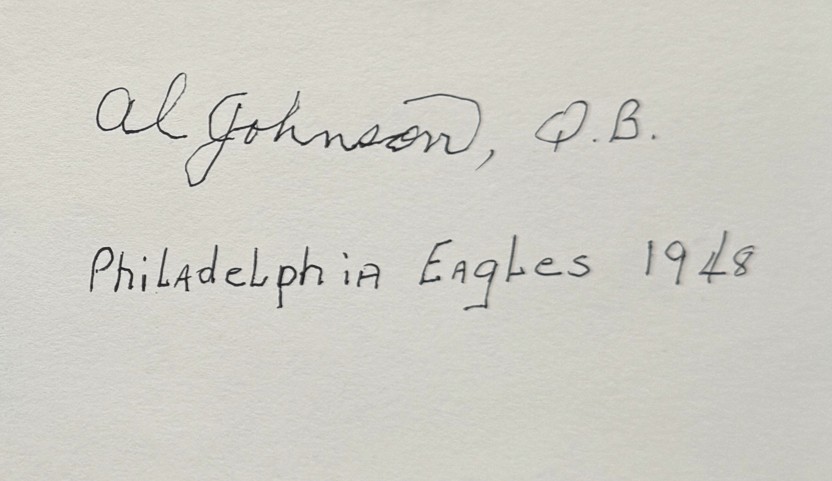 Al Johnson, Q.B.
Philadelphia Eagles 1948